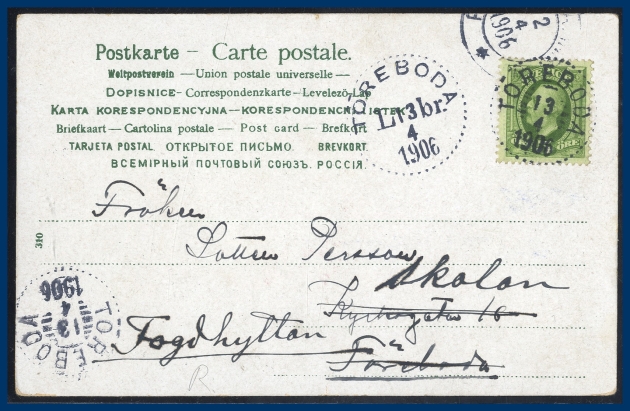 Postkarte – Carte postale.
Weltpostverein — Union postale universelle —
DOPISNICE – Correspondenzkarte – Levelező-Lap
KARTA KORESPONDENCYJNA — KORESPONDENČNI LISTEK
Briefkaart — Cartolina postale — Post card — Brefkort
TARJETA POSTAL ОТКРЫТОЕ ПИСЬМО BREVKORT.
ВСЕМІРНЫЙ ПОЧТОВЫЙ СОЮЗЪ. РОССІЯ.
2
4
1906
TÖREBODA
13
4
1906
L. br.
TÖREBODA
13
4
1906
ÖRE
310
Fröken
Lotten Persson
Skolan
Kyrkogatan 16
Fogdhyttan
Töreboda
TÖREBODA
13
4
1906
R